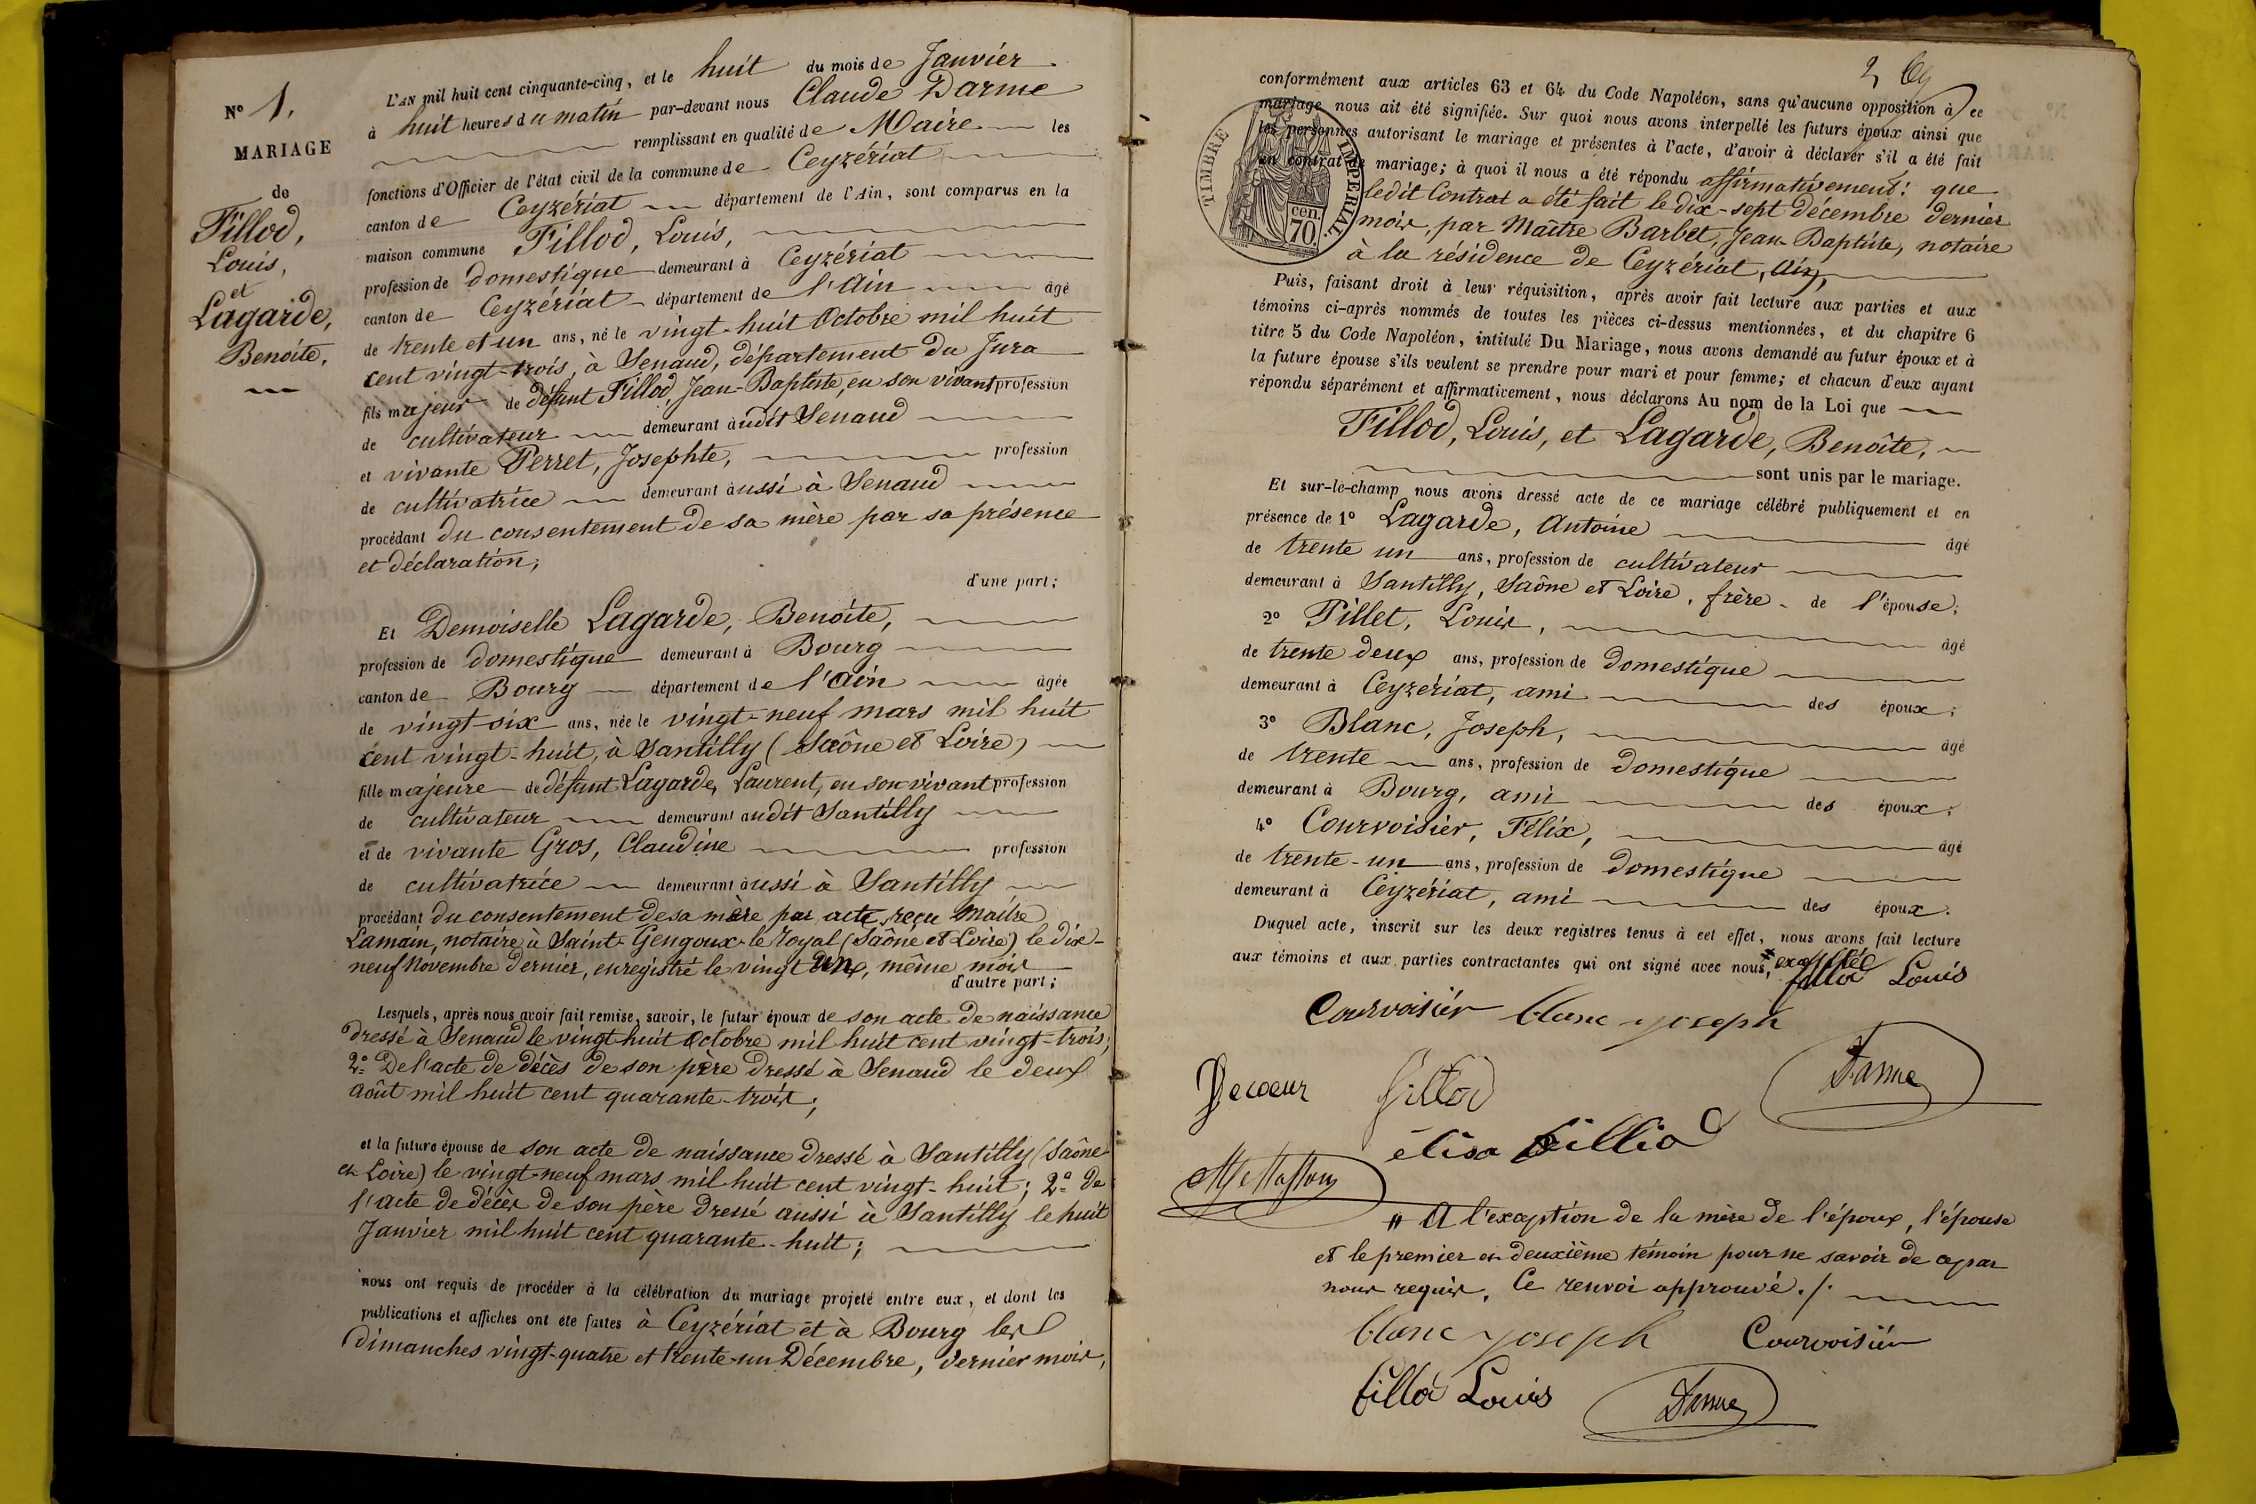 N° 1.
MARIAGE
de
Fillod,
Louis,
et
Lagarde,
Benoite.
L'AN mil huit cent cinquante-cinq, et le huit du mois de Janvier
à huit heures du matin par-devant nous Claude Darme
remplissant en qualité de Maire les
fonctions d'Officier de l'état civil de la commune de Ceyzériat
canton de Ceyzériat département de l'Ain, sont comparus en la
maison commune Fillod, Louis,
profession de domestique demeurant à Ceyzériat
canton de Ceyzériat département de l'Ain âgé
de trente et un ans, né le vingt-huit Octobre mil huit
cent vingt-trois, à Senaud, département du Jura
fils majeur de défunt Fillod, Jean-Baptiste, en son vivant profession
de cultivateur demeurant audit Senaud
et vivante Perret, Josephte, profession
de cultivatrice demeurant aussi à Senaud
procédant du consentement de sa mère par sa présence
et déclaration;
d'une part;
Et Demoiselle Lagarde, Benoite,
profession de domestique demeurant à Bourg
canton de Bourg département de l'Ain âgée
de vingt-six ans, née le vingt-neuf mars mil huit
cent vingt-huit, à Santilly (Saône et Loire)
fille majeure de défunt Lagarde, Laurent, en son vivant profession
de cultivateur demeurant audit Santilly
et de vivante Gros, Claudine profession
de cultivatrice demeurant aussi à Santilly
procédant du consentement de sa mère par acte reçu Maître
Lamain, notaire à Saint-Gengoux-le-Royal (Saône et Loire) le dix-
neuf Novembre dernier, enregistré le vingt un, même mois
d'autre part;
Lesquels, après nous avoir fait remise, savoir, le futur époux de son acte de naissance
dressé à Senaud le vingt-huit Octobre mil huit cent vingt-trois;
2° De l'acte de décès de son père dressé à Senaud le deux
Août mil huit cent quarante-trois;
et la future épouse de son acte de naissance dressé à Santilly (Saône
et Loire) le vingt-neuf mars mil huit cent vingt-huit; 2° de
l'acte de décès de son père dressé aussi à Santilly le huit
Janvier mil huit cent quarante-huit;
nous ont requis de procéder à la célébration du mariage projeté entre eux, et dont les
publications et affiches ont été faites à Ceyzériat et à Bourg les
dimanches vingt-quatre et trente-un Décembre, dernier mois,
2
conformément aux articles 63 et 64 du Code Napoléon, sans qu'aucune opposition à ce
mariage nous ait été signifiée. Sur quoi nous avons interpellé les futurs époux ainsi que
les personnes autorisant le mariage et présentes à l'acte, d'avoir à déclarer s'il a été fait
un contrat de mariage; à quoi il nous a été répondu affirmativement: que
TIMBRE IMPERIAL.
cen.
70.
ledit Contrat a été fait le dix-sept décembre dernier
mois, par Maître Barbet, Jean-Baptiste, notaire
à la résidence de Ceyzériat, Ain,
Puis, faisant droit à leur réquisition, après avoir fait lecture aux parties et aux
témoins ci-après nommés de toutes les pièces ci-dessus mentionnées, et du chapitre 6
titre 5 du Code Napoléon, intitulé Du Mariage, nous avons demandé au futur époux et à
la future épouse s'ils veulent se prendre pour mari et pour femme; et chacun d'eux ayant
répondu séparément et affirmativement, nous déclarons Au nom de la Loi que
Fillod, Louis, et Lagarde, Benoîte,
sont unis par le mariage.
Et sur-le-champ nous avons dressé acte de ce mariage célébré publiquement et en
présence de 1° Lagarde, Antoine âgé
de trente un ans, profession de cultivateur
demeurant à Santilly, Saône et Loire, frère de l'épouse;
2° Pillet, Louis, âgé
de trente deux ans, profession de domestique
demeurant à Ceyzériat, ami des époux;
3° Blanc, Joseph, âgé
de trente ans, profession de domestique
demeurant à Bourg, ami des époux;
4° Courvoisier, Félix, âgé
de trente-un ans, profession de domestique
demeurant à Ceyzériat, ami des époux.
Duquel acte, inscrit sur les deux registres tenus à cet effet, nous avons fait lecture
aux témoins et aux parties contractantes qui ont signé avec nous,
fillod Louis
Courvoisiér blanc joseph
Decoeur fillod Darme
élisa filliod
# A l'exception de la mère de l'époux, l'épouse
et le premier et deuxième témoin pour ne savoir de ce par
nous requis. Ce renvoi approuvé ./.
blanc joseph Courvoisiér
fillod Louis Darme